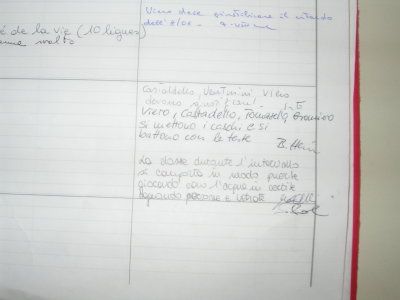 é de la vie (10 lignes)
Viero deve giustificare il ritardo
dell'
Castaldello, Venturini Viero
devono giustificare!
Viero, Castadello, Tomasello,
si mettono i caschi e si
battono con le teste
La classe durante l'intervallo
si comporta in modo puerile
giocando con l'acqua in cortile
bagnando persone e vetrate